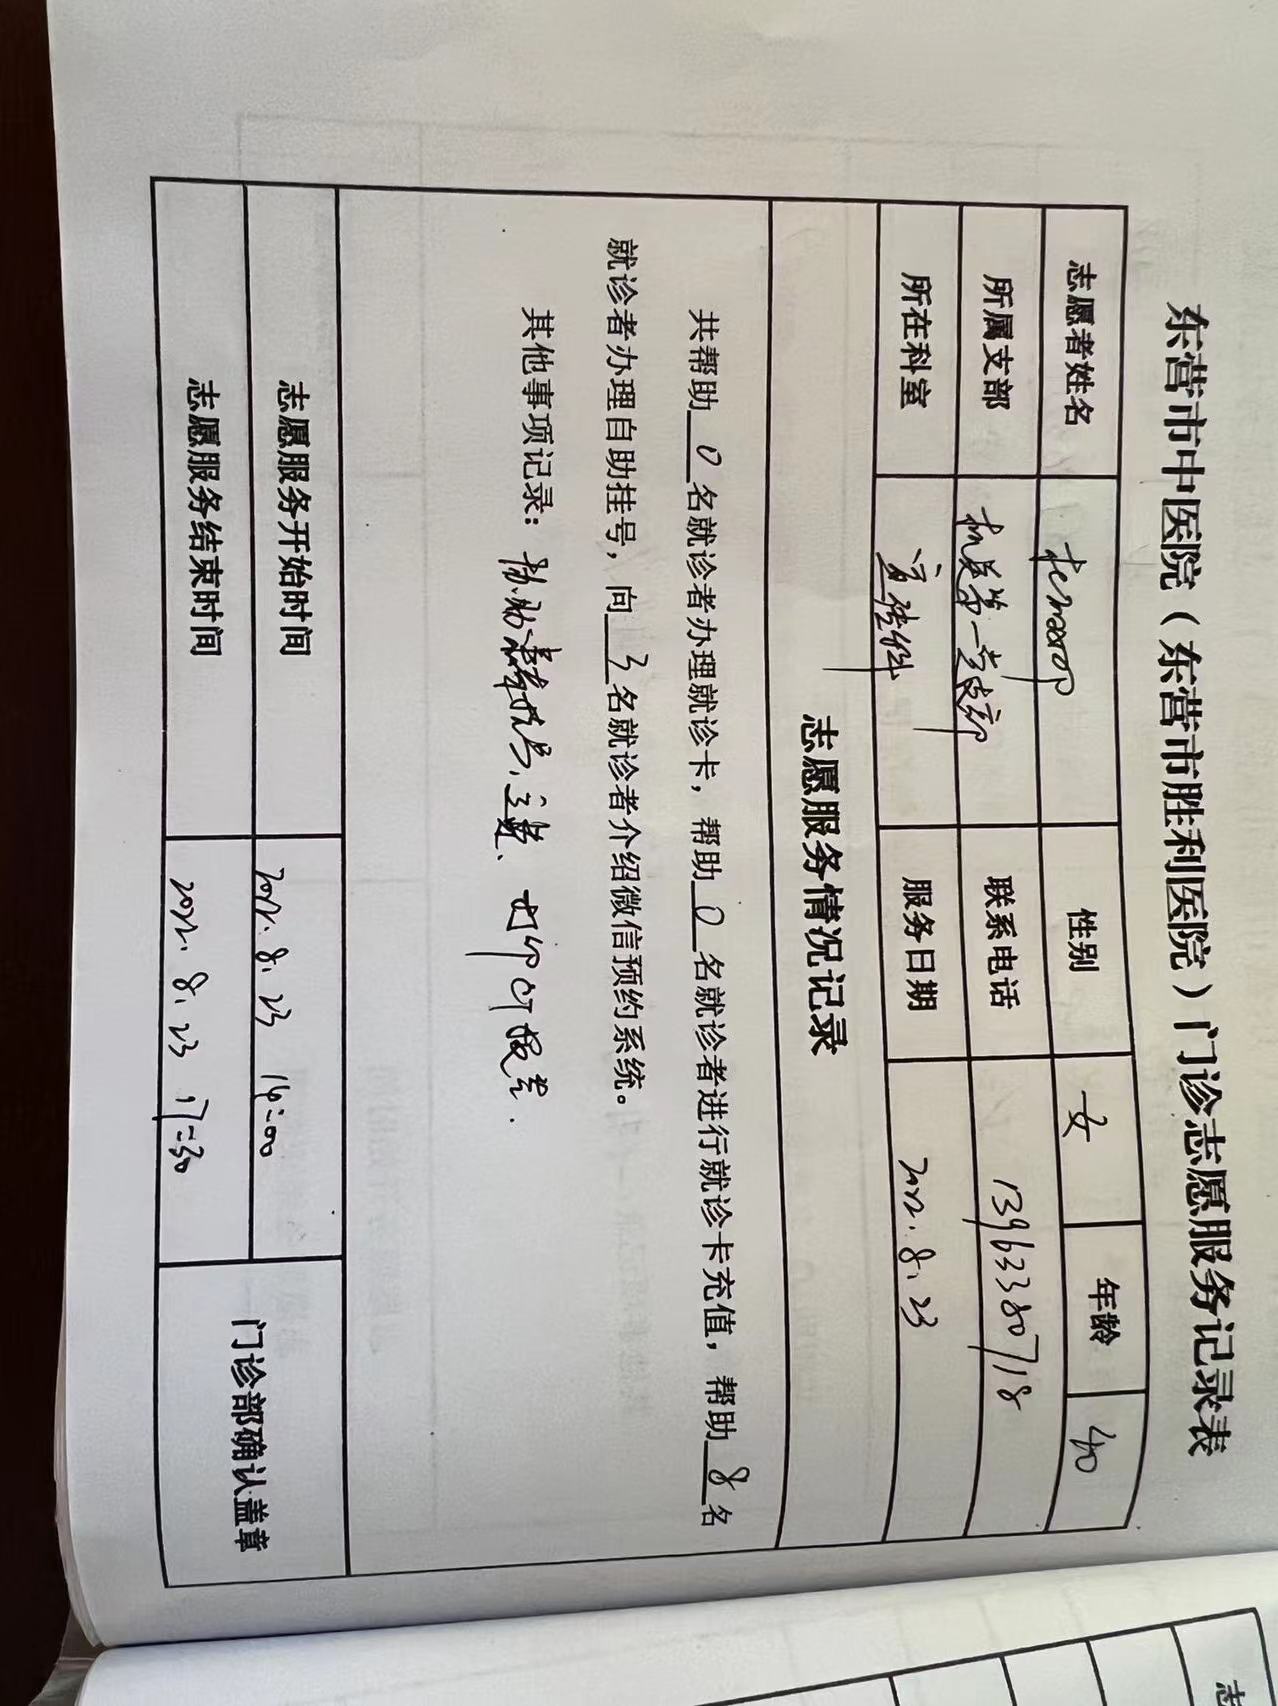 东营市中医院（东营市胜利医院）门诊志愿服务记录表
志愿者姓名 性别 女 年龄 40
所属支部 机关第一党支部 联系电话 13963380718
所在科室 宣传科 服务日期 2022.8.23
志愿服务情况记录
共帮助 0 名就诊者办理就诊卡，帮助 0 名就诊者进行就诊卡充值，帮助 8 名
就诊者办理自助挂号，向 3 名就诊者介绍微信预约系统。
其他事项记录：协助患者挂号、打印CT报告.
志愿服务开始时间 2022.8.23 14:00
志愿服务结束时间 2022.8.23 17:30
门诊部确认盖章
志